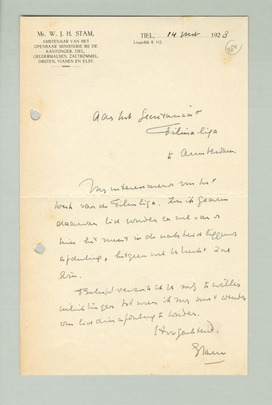 Mr. W. J. H. STAM,
AMBTENAAR VAN HET
OPENBAAR MINISTERIE BIJ DE
KANTONGER. TIEL,
GELDERMALSEN, ZALTBOMMEL,
DRUTEN, VIANEN EN ELST.
TIEL, 14 1928
Aan het Secretariaat
Filmliga
te Amsterdam.
het
werk van de Filmliga. Zou ik gaarne
daarvan lid worden en wel van
de meest in de nabijheid liggende
afdeeling, hetgeen wel Utrecht zal
zijn.
Beleefd verzoek ik U mij te willen
tot wien ik mij moet wenden
om lid dier afdeeling te worden.
Hoogachtend,
Stam